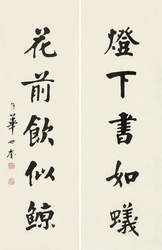 燈下書如蟻
花前飲似鯨
華世奎